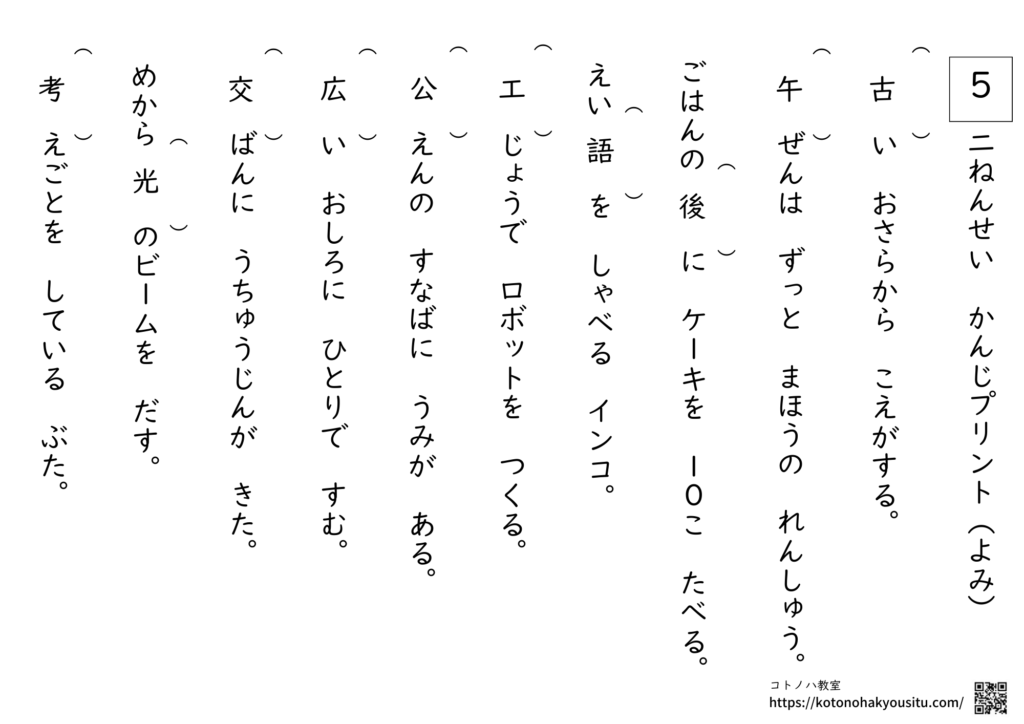 5 二ねんせい かんじプリント(よみ)
( 古 )い おさらから こえがする。
( 午 )ぜんは ずっと まほうの れんしゅう。
ごはんの( 後 )に ケーキを 10こ たべる。
えい( 語 )を しゃべる インコ。
( 工 )じょうで ロボットを つくる。
( 公 )えんの すなばに うみが ある。
( 広 )い おしろに ひとりで すむ。
( 交 )ばんに うちゅうじんが きた。
めから( 光 )のビームを だす。
( 考 )えごとを している ぶた。
コトノハ教室
https://kotonohakyousitu.com/